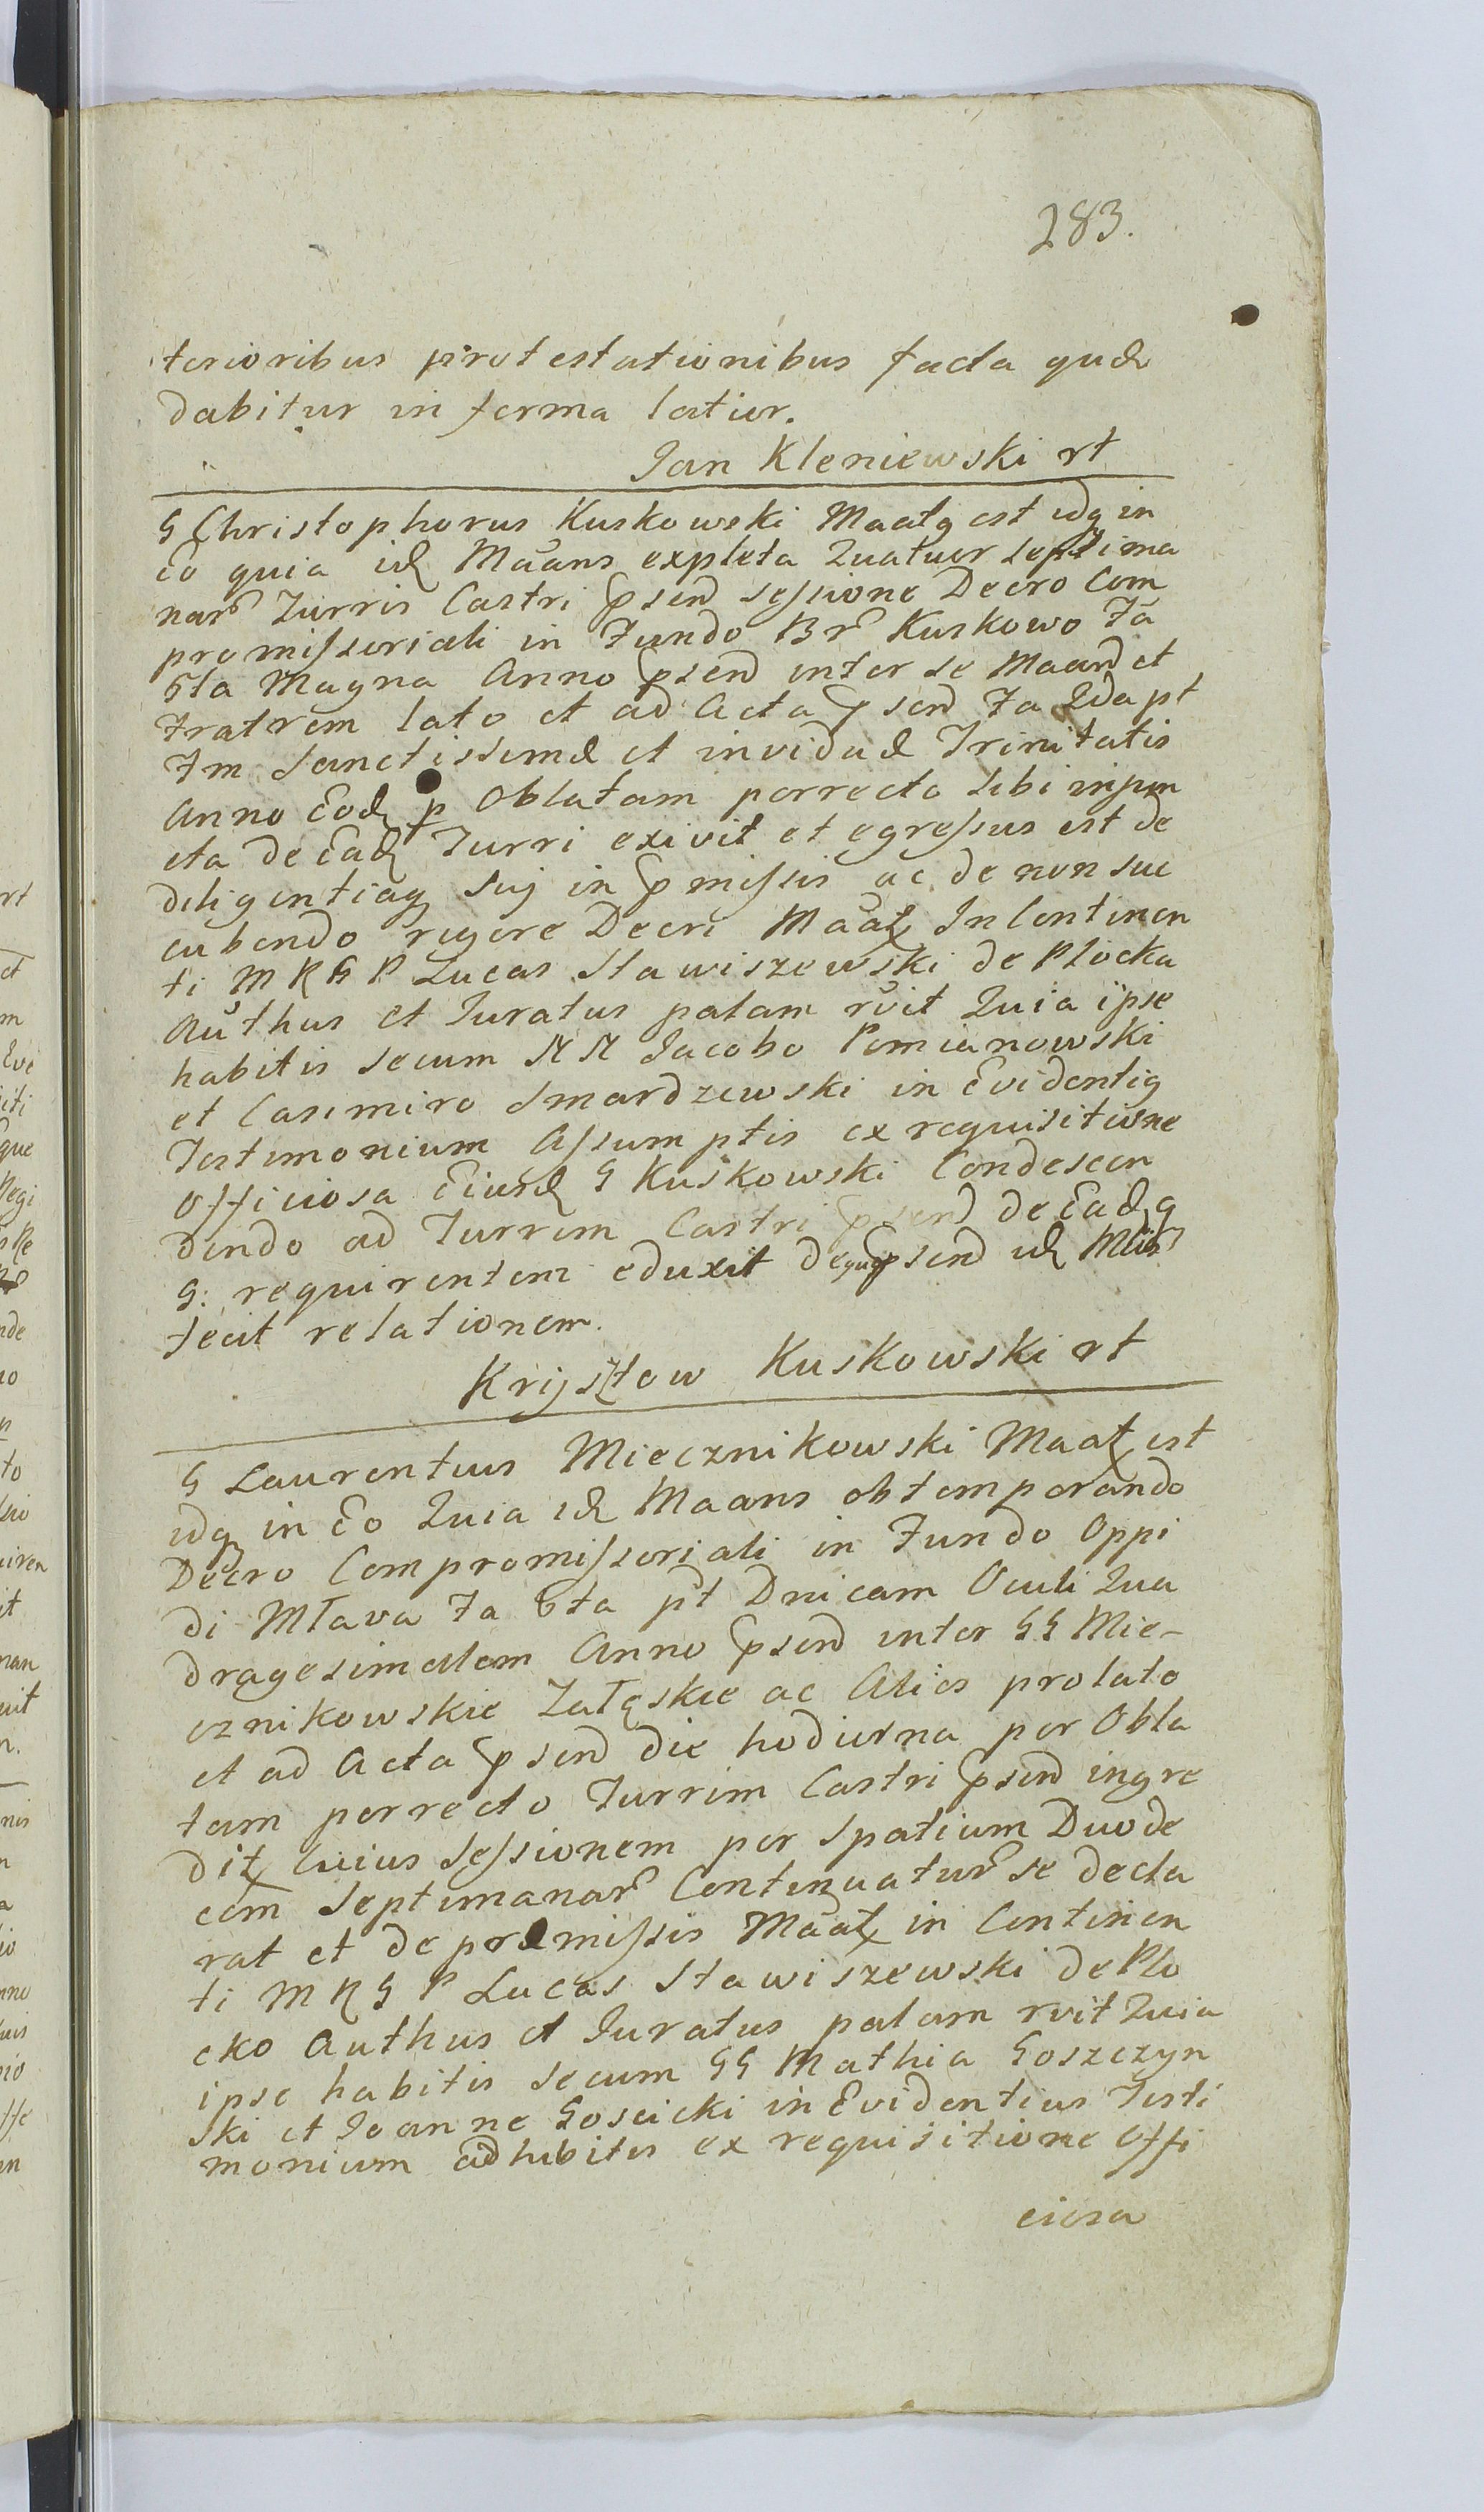 283.
terioribus protestationibus facta quæ
dabitur in forma latior.
Jan Kleniewski rt
G Christophorus Kuskowski Maatq est idq in
Eo quia id Maans expleta Quatuor septima
nar Turris Castri psend sessione Decro Com
promissoriali in Fundo Br Kuskowo Fa
6ta Magna Anno psend inter se Maand et
Fratrem lato et ad Acta psend Fa 2da pt
Fm Sanctissimæ et inviduæ Trinitatis
Anno Eod p Oblatam porrecto sibi injun
cta de Ead Turri exivit et egressus est de
diligentiaq suj in pmissis ac de non suc
cubendo rigore Decri Maat In Continen
ti M R G P Lucas Stawiszewski de Plocka
Authus et Juratus palam rvit Quia ipse
habitis secum NN Jacobo Pomianowski
et Casimiro Smardzewski in Evidentig
Testimonium Assumptis ex requisitione
officiosa Eiusd G Kuskowski Condescen
dendo ad Turrim Castri psend de Eadq
G: requirentem eduxit dequo psend id Mlis
fecit relationem.
Krysztow Kuskowski rt
G Laurentius Miecznikowski Maat est
idq in Eo Quia id Maans obtemperando
Decro Compromissoriali in Fundo Oppi
di Mława Fa 6ta pt Dnicam Oculi Qua
dragesimalem Anno psend inter GG Mie-
cznikowskie Załęskie ac Alios prolato
et ad Acta psend die hodierna per Obla
tam porrecto Turrim Castri psend ingre
dit Cuius Sessionem per Spatium Duode
cem Septimanar Continuatur se decla
rat et de præmissis Maat in Continen
ti M R G P Lucas Stawiszewski de Plo
cko Authus et Juratus palam rvit Quia
ipse habitis secum GG Mathia Goszczyn
ski et Joanne Goscicki in Evidentius Testi
monium adhibitis ex requisitione offi
ciosa